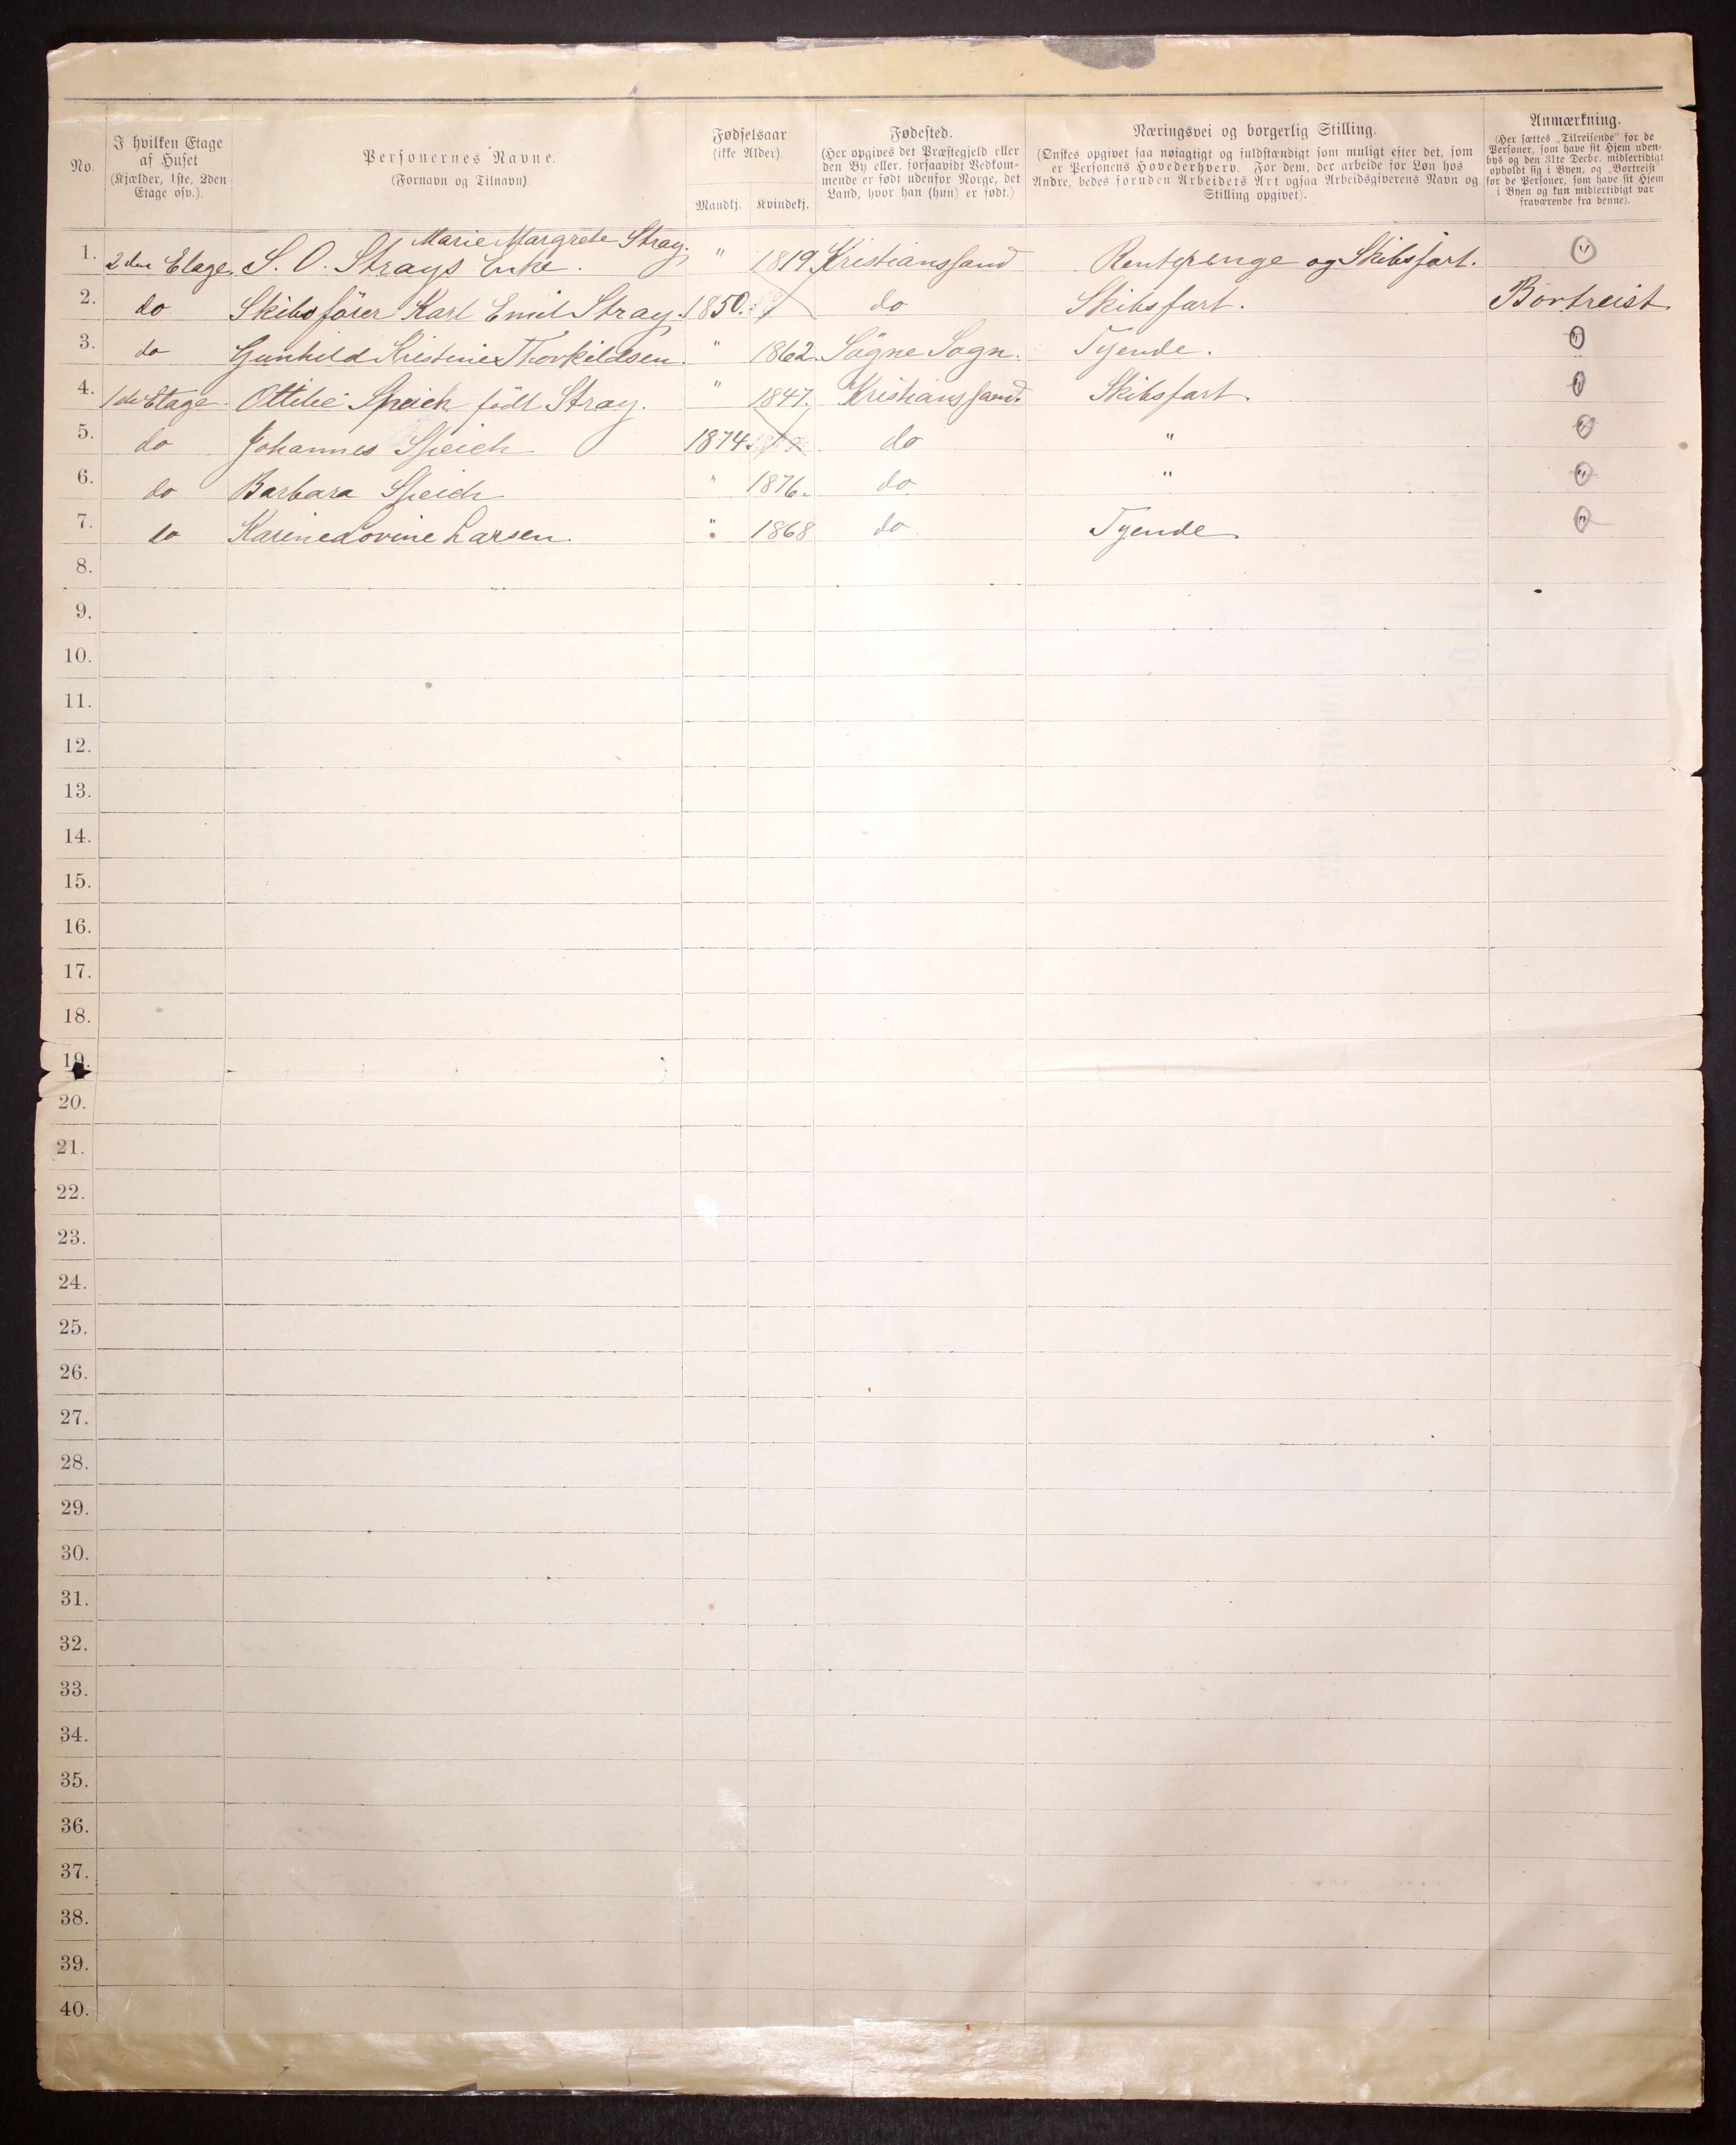 No.
I hvilken Etage
af Huset
(Kjælder, 1ste, 2den
Etage osv.).
Personernes Navne.
(Fornavn og Tilnavn)
Fødselsaar
(ikke Alder)
Mandkj. Kvindekj.
Fødested.
(Her opgives det Præstegjeld eller
den By eller, forsaavidt Vedkom-
mende er født udenfor Norge, det
Land, hvor han (hun) er født.)
Næringsvei og borgerlig Stilling.
(Ønskes opgivet saa nøiagtigt og fuldstændigt som muligt efter det, som
er Personens Hovederhverv. For dem, der arbeide for Løn hos
Andre, bedes foruden Arbeidets Art ogsaa Arbeidsgiverens Navn og
Stilling opgivet).
Anmærkning.
(Her sættes „Tilreisende" for de
Personer, som have sit Hjem uden-
bys og den 31te Decbr. midlertidigt
opholdt sig i Byen, og „Bortreist"
for de Personer, som have sit Hjem
i Byen og kun midlertidigt var
fraværende fra denne).
Marie Margrete Stray.
1. 2den Etage. S. O. Strays Enke. " 1819 Kristianssand Rentepenge og Skibsfart. "
2. do Skibsfører Karl Emil Stray. 1850. do Skibsfart. Bortreist
3. do Gunhild Kristine Thorkildsen. " 1862. Sögne Sogn. Tyende. "
4. 1ste Etage. Ottilie Speich født Stray. " 1847. Kristianssand. Skibsfart. "
5. do Johannes Speich 1874. do " "
6. do Barbara Speich " 1876. do " "
7. do Karine Lovine Larsen. " 1868 do Tyende "
8.
9.
10.
11.
12.
13.
14.
15.
16.
17.
18.
19.
20.
21.
22.
23.
24.
25.
26.
27.
28.
29.
30.
31.
32.
33.
34.
35.
36.
37.
38.
39.
40.